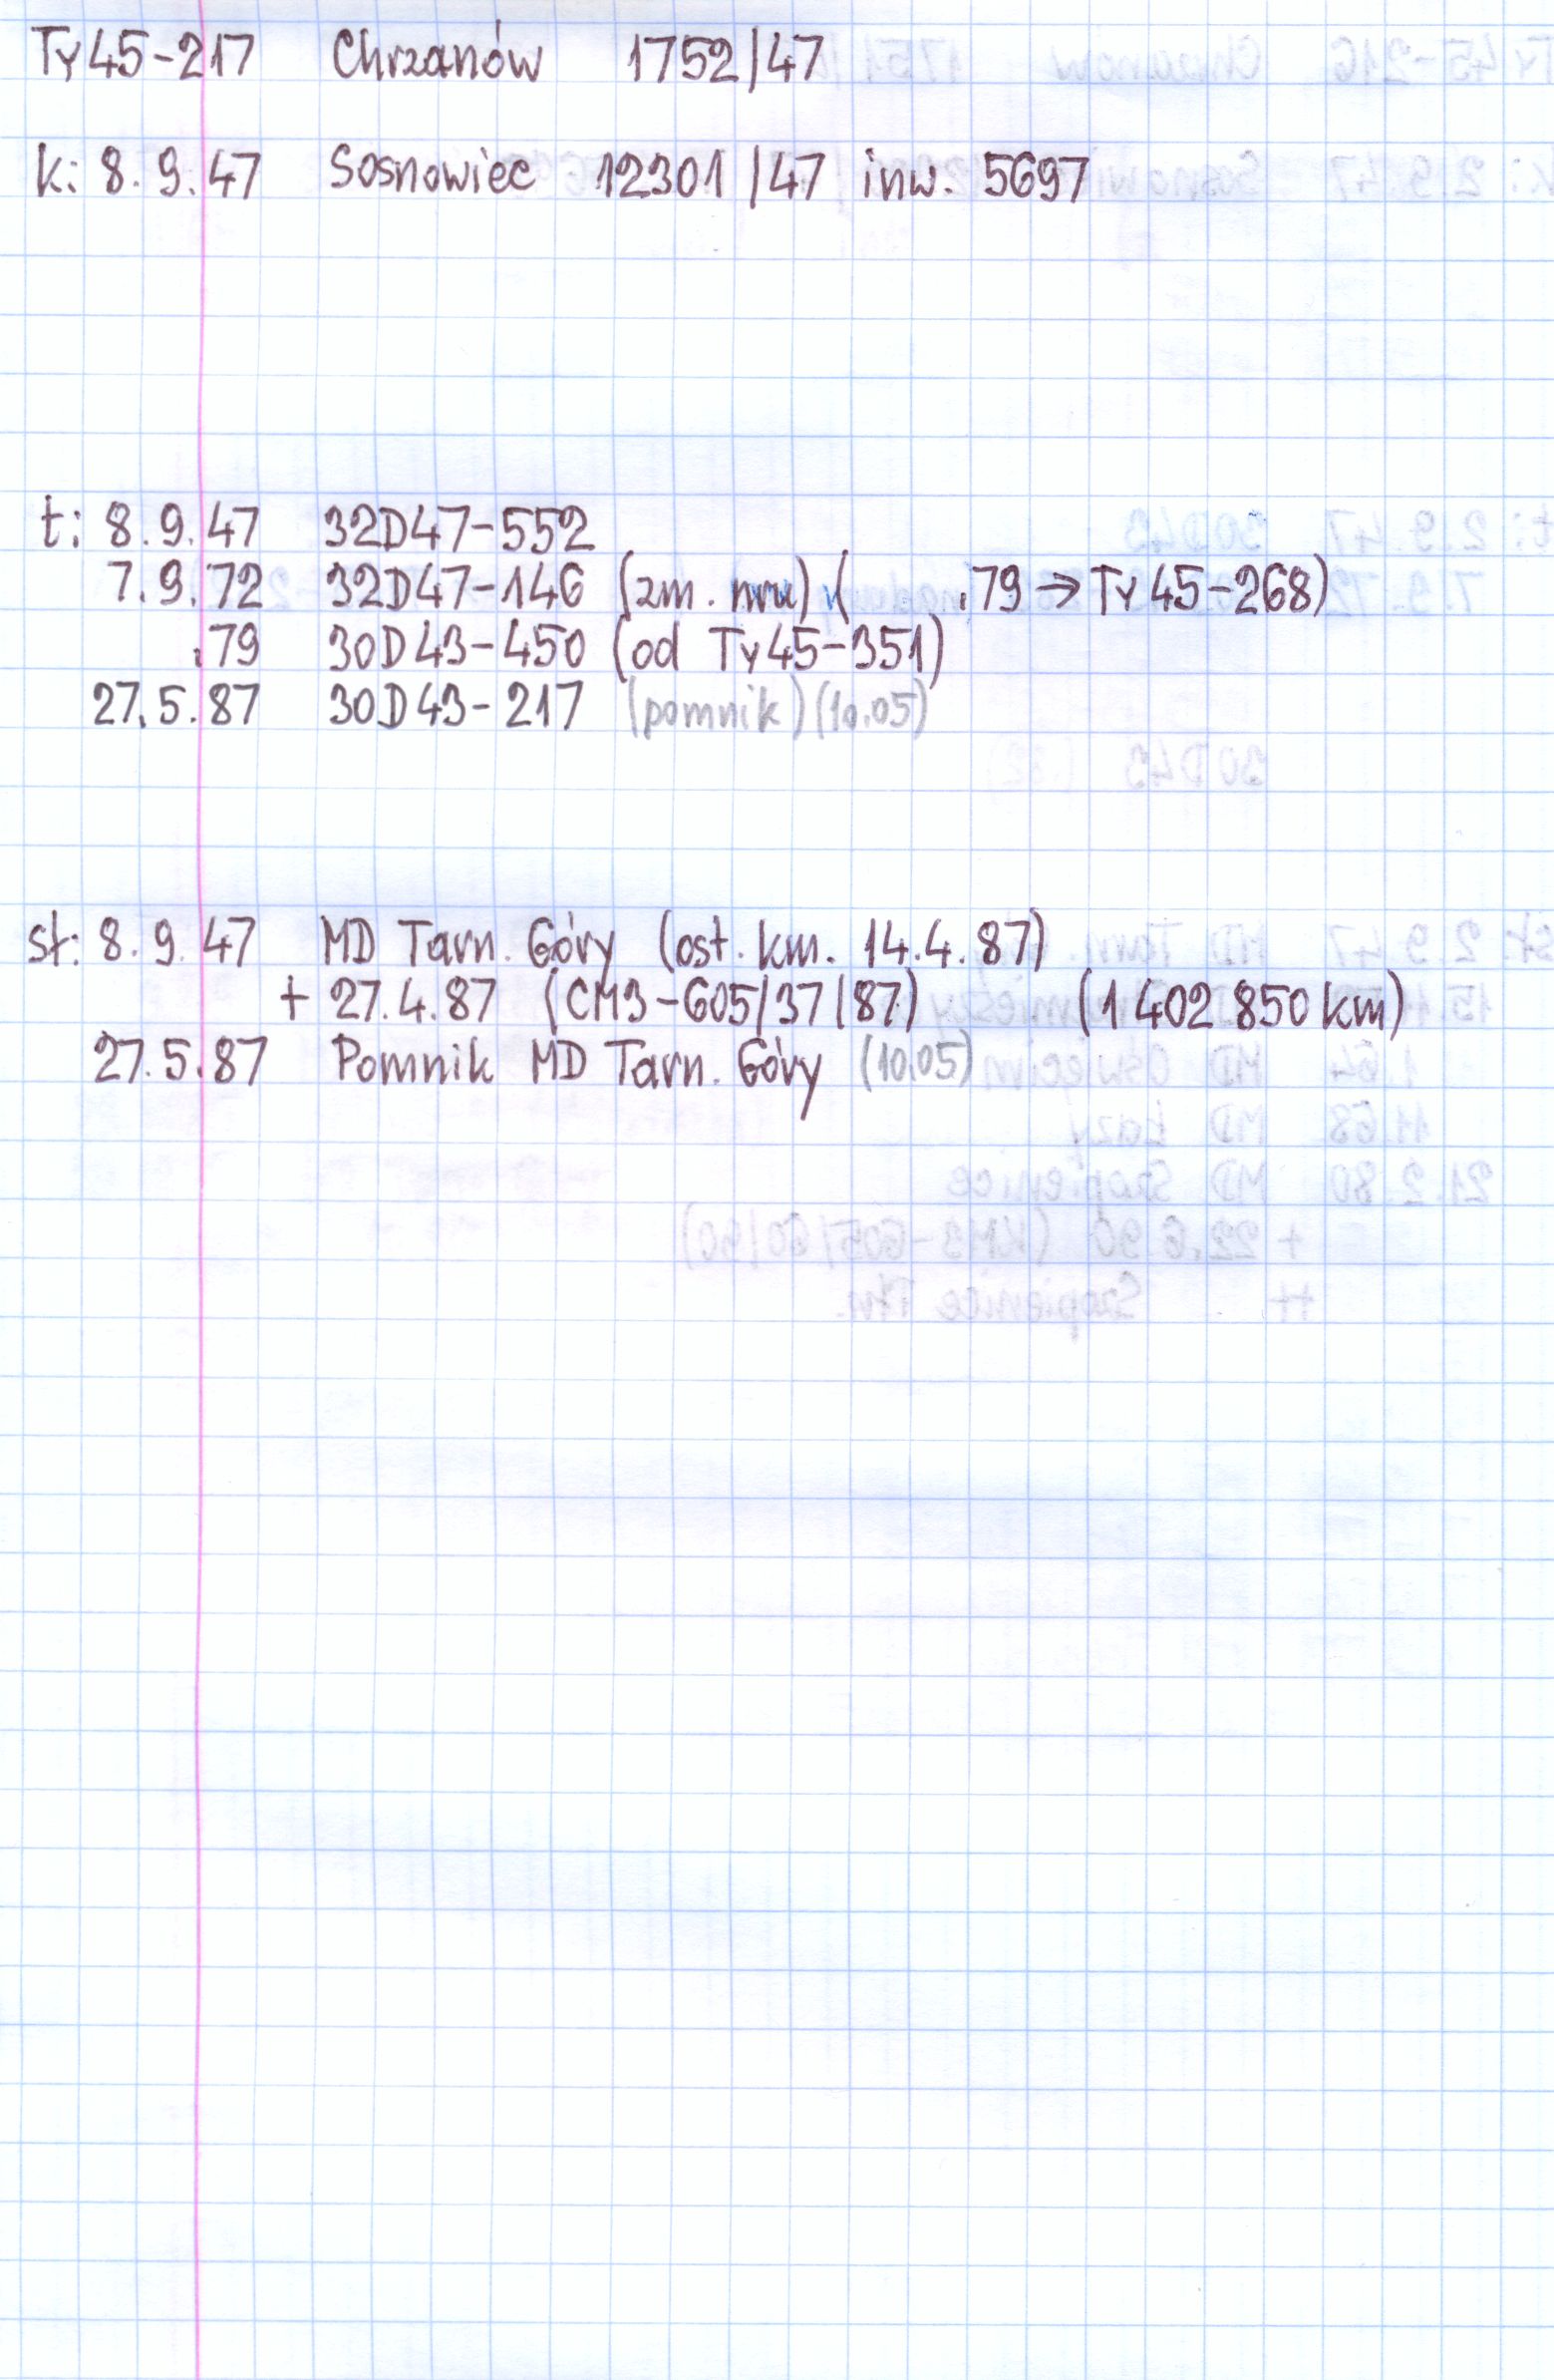 Ty45-217 Chrzanów 1752/47
k: 8.9.47 Sosnowiec 12301/47 inw. 5697
t: 8.9.47 32D47-552
7.9.72 32D47-146 (zm. nru) ( .79 → Ty45-268)
.79 30D43-450 (od Ty45-351)
27.5.87 30D43-217 (pomnik) (10.05)
st: 8.9.47 MD Tarn. Góry (ost. km. 14.4.87)
+ 27.4.87 (CM3-605/37/87) (1 402 850 km)
27.5.87 Pomnik MD Tarn. Góry (10.05)